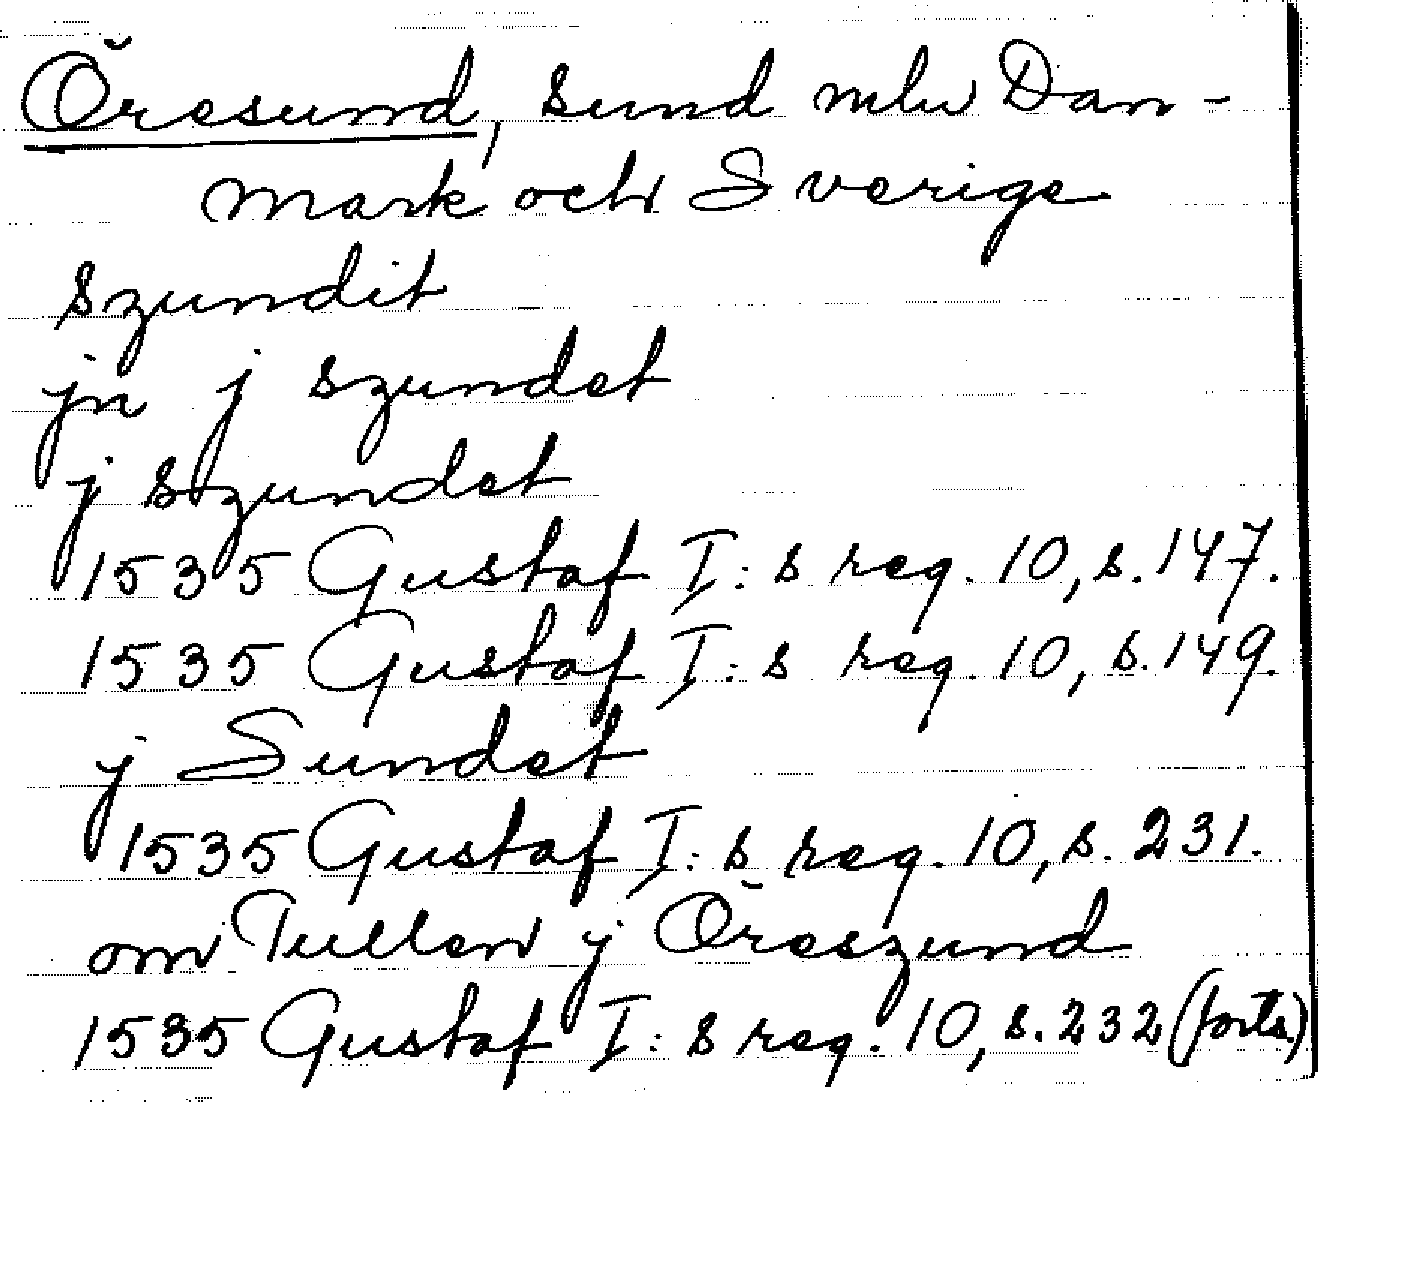 Öresund, sund mlu Dan-
mark och Sverige
szundit
jn j szundet
j szundet
1535 Gustaf I:s reg. 10, s. 147.
1535 Gustaf I:s reg. 10, s. 149.
j Sundet
1535 Gustaf I:s reg. 10, s. 231.
om Tullen j Öreszund
1535 Gustaf I:s reg. 10, s. 232 (forts)